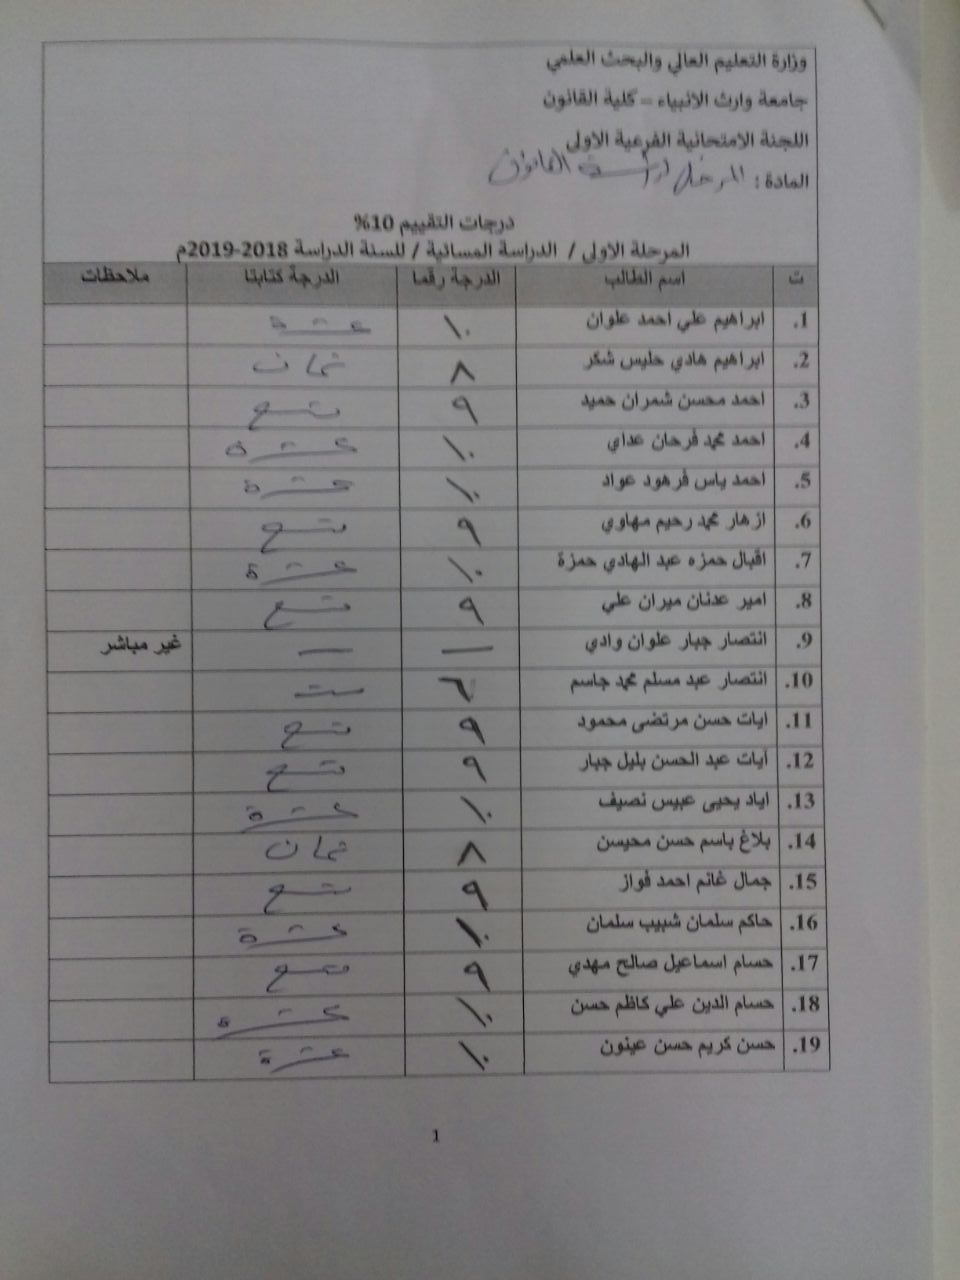 وزارة التعليم العالي والبحث العلمي
جامعة وارث الانبياء – كلية القانون
اللجنة الامتحانية الفرعية الاولى
المادة : المدخل لدراسة القانون
درجات التقييم 10%
المرحلة الاولى / الدراسة المسائية / للسنة الدراسة 2018-2019م
ت اسم الطالب الدرجة رقما الدرجة كتابتا ملاحظات
1. ابراهيم علي احمد علوان ١٠ عشرة
2. ابراهيم هادي حليس شكر ٨ ثمان
3. احمد محسن شمران حميد ٩ تسع
4. احمد محمد فرحان عداي ١٠ عشرة
5. احمد ياس فرهود عواد ١٠ عشرة
6. ازهار محمد رحيم مهاوي ٩ تسع
7. اقبال حمزه عبد الهادي حمزة ١٠ عشرة
8. امير عدنان ميران علي ٩ تسع
9. انتصار جبار علوان وادي — — غير مباشر
10. انتصار عبد مسلم محمد جاسم ٦ ست
11. ايات حسن مرتضى محمود ٩ تسع
12. آيات عبد الحسن بليل جبار ٩ تسع
13. اياد يحيى عبيس نصيف ١٠ عشرة
14. بلاغ باسم حسن محيسن ٨ ثمان
15. جمال غانم احمد فواز ٩ تسع
16. حاكم سلمان شبيب سلمان ١٠ عشرة
17. حسام اسماعيل صالح مهدي ٩ تسع
18. حسام الدين علي كاظم حسن ١٠ عشرة
19. حسن كريم حسن عينون ١٠ عشرة
1